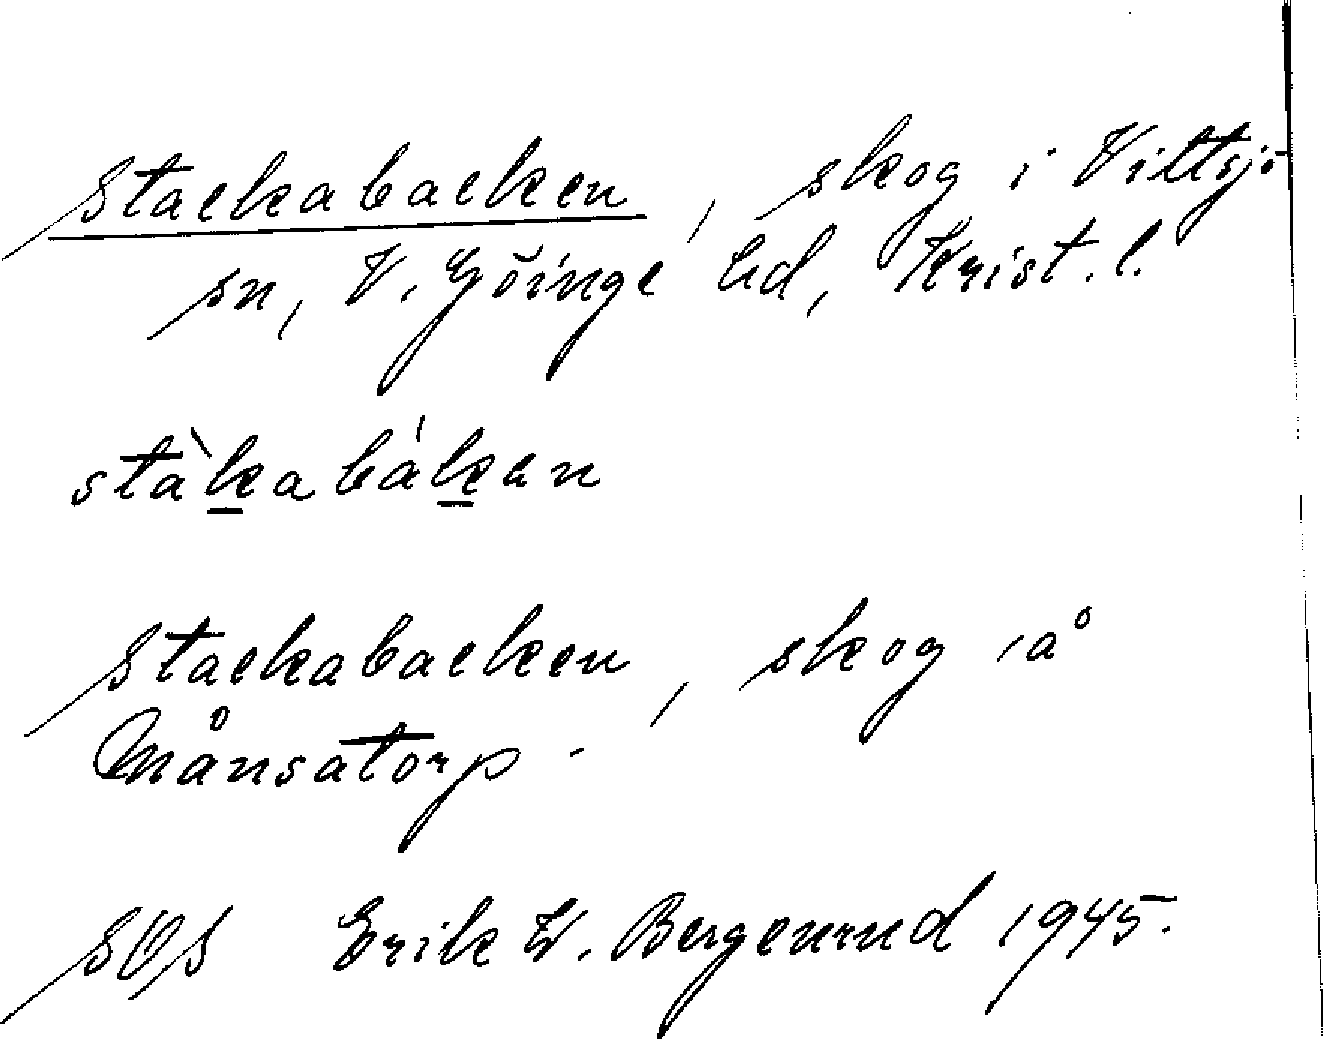 Stackabacken, skog i Vittsjö
sn, V. Göinge hd, Krist. l.
stàkabákan
Stackabacken, skog å
Månsatorp.
SOS Erik W. Bergenrud 1945.